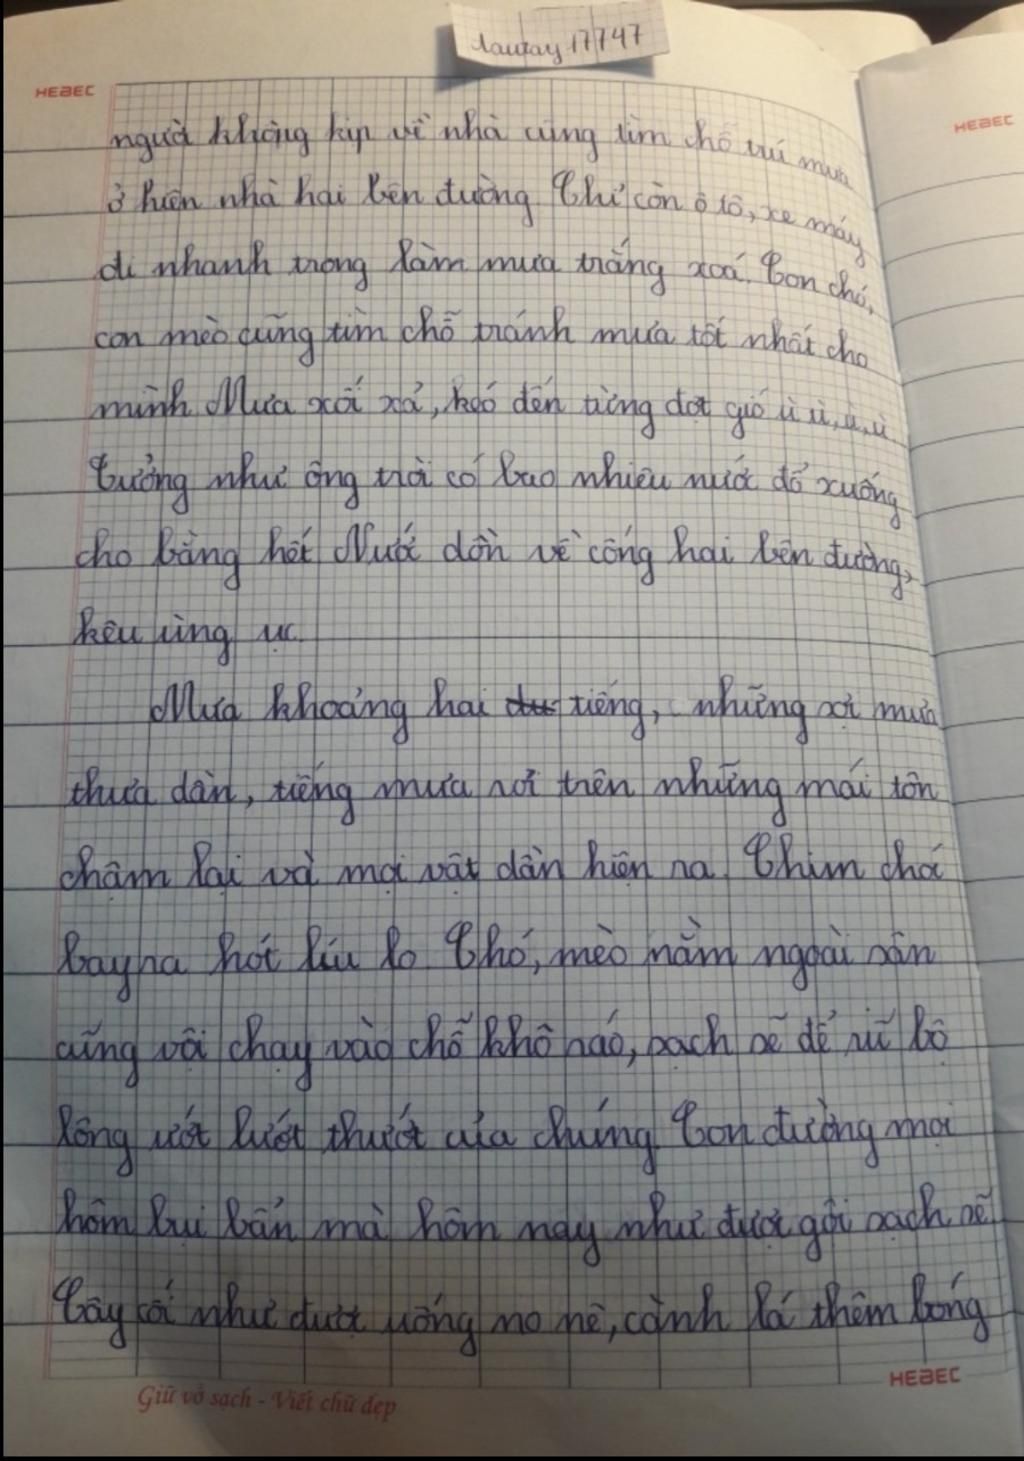 tautay 17747
HEBEC
HEBEC
người không kịp về nhà cũng tìm chỗ trú mưa
ở hiên nhà hai bên đường. Chỉ còn ô tô, xe máy
đi nhanh trong làm mưa trắng xoá. Con chó,
con mèo cũng tìm chỗ tránh mưa tốt nhất cho
mình. Mưa xối xả, kéo đến từng đợt gió ù ù, ù, ù
Tưởng như ông trời có bao nhiêu nước đổ xuống
cho bằng hết. Nước dồn về cống hai bên đường,
kêu ùng ục.
Mưa khoảng hai tiếng, những sợi mưa
thưa dần, tiếng mưa rơi trên những mái tôn
chậm lại và mọi vật dần hiện ra. Chim chóc
bay ra hót líu lo. Chó, mèo nằm ngoài sân
cũng vội chạy vào chỗ khô ráo, sạch sẽ để rũ bộ
lông ướt lướt thướt của chúng. Con đường mọi
hôm bụi bẩn mà hôm nay như được gội sạch sẽ.
Cây cối như được uống no nê, cành lá thêm bóng
HEBEC
Giữ vở sạch - Viết chữ đẹp